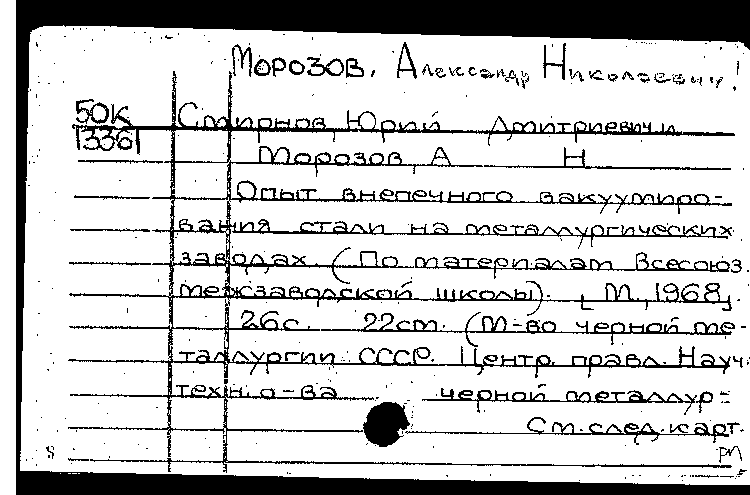 Морозов, Александр Николаевич!
50К
1336
Смирнов, Юрий Дмитриевич и
Морозов, А Н
Опыт внепечного вакуумиро-
вания стали на металлургических
заводах. (По материалам Всесоюз.
межзаводской школы). [М., 1968].
26с. 22см. (М-во черной ме-
таллургии СССР. Центр. правл. Науч.-
техн. о-ва черной металлур-
См. след. карт.